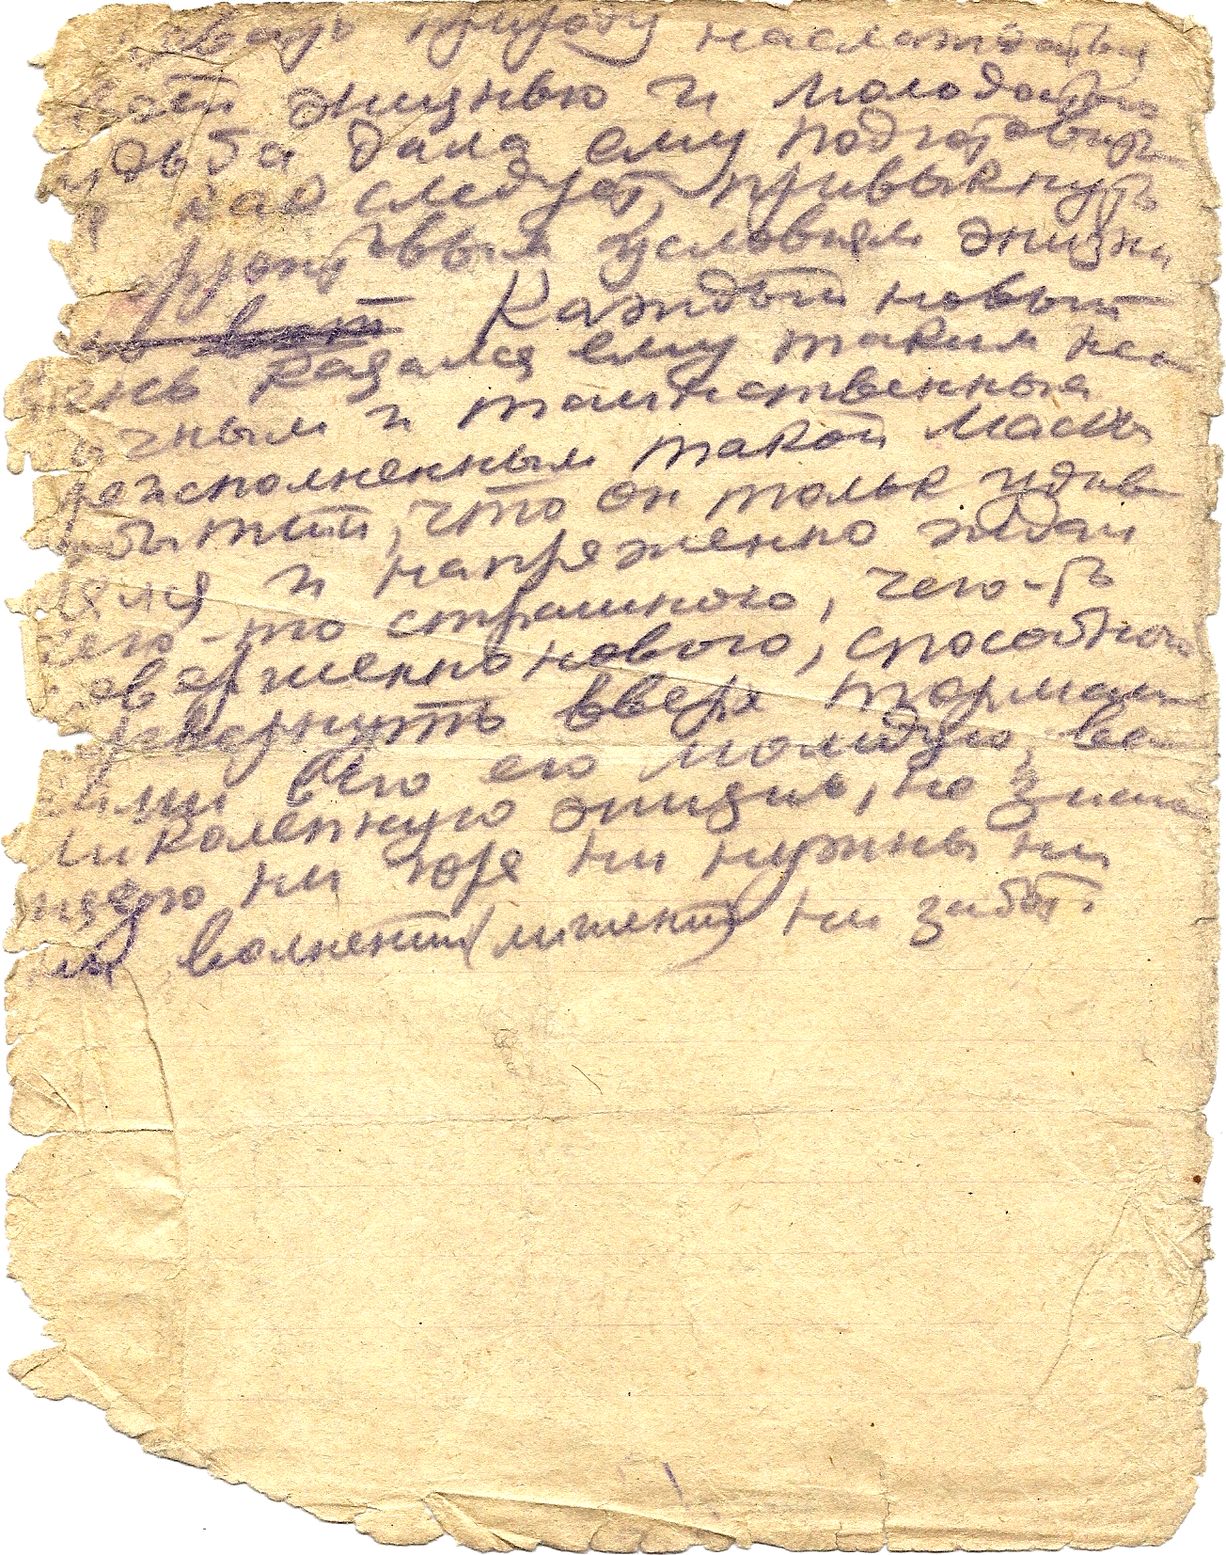 вать природу наслаждаться
жизнью и молодостью
удьба дала ему подготовить
как следует, привыкнуть
фронтовым условиям жизни
Каждый новый
ень казался ему таким не
чным и таинственным
реисполненным такой массы
бытий, что он тольк удив
лялся и напряженно ждал
чего-то страшного, чего-то
совершенно нового, способного
ревернуть вверх тормаш
ками всю его молодую, ве
ликолепную жизнь, не знаю
щую ни горя ни нужны ни
ны волнений (лишений) ни забот.